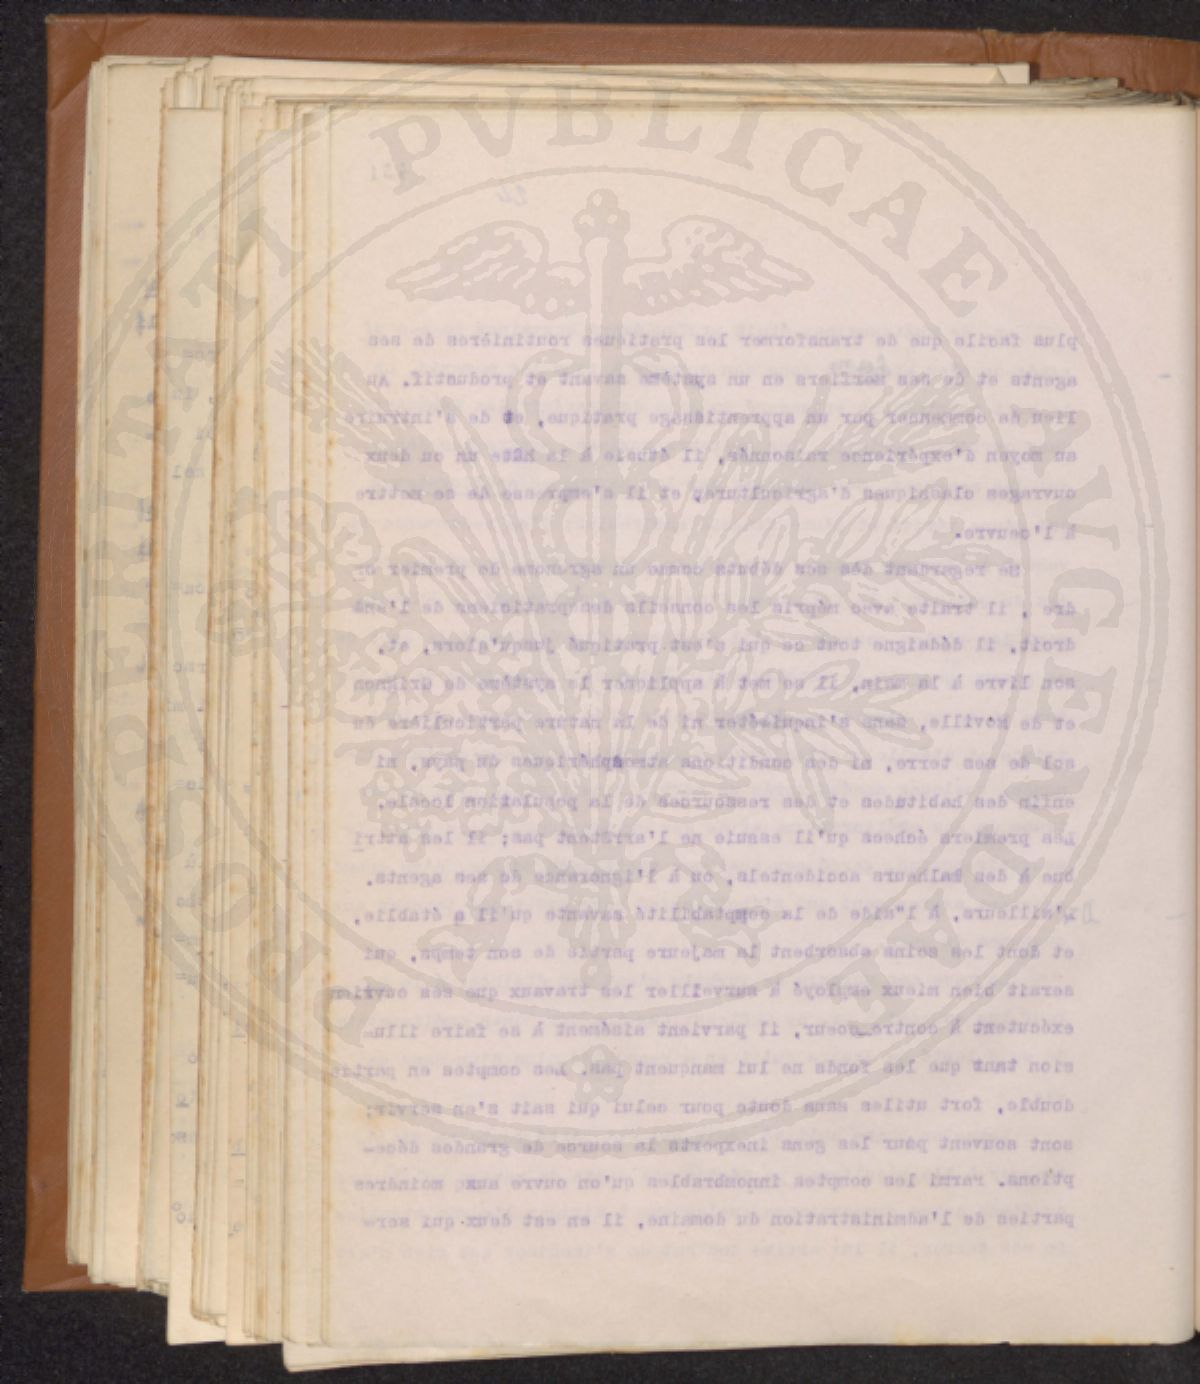 PROSPERITATI PVBLICAE AVGENDAE
plus facile que de transformer les pratiques routinières de ses
agents et de ses fermiers en un système savant et productif. Au
lieu de commencer par un apprentissage pratique, et de s'intruire
au moyen d'expérience raisonnée, il étudie à la hâte un ou deux
ouvrages classiques d'agriculture, et il s'empresse de se mettre
à l'oeuvre.
Se regardant dès ses débuts comme un agronome de premier or
dre , il traite avec mépris les conseils des praticiens de l'end
droit, il dédaigne tout ce qui s'est pratiqué jusqu'alors, et,
son livre à la main, il se met à appliquer le système de Grignon
et de Roville, sans s'inquiéter ni de la nature particulière du
sol de ses terre, ni des conditions atmosphériques du pays, ni
enfin des habitudes et des ressources de la population locale.
Les premiers échecs qu'il essuie ne l'arrêtent pas; il les attri
bue à des malheurs accidentels, ou à l'ignorance de ses agents.
D'ailleurs, à l"aide de la comptabilité savante qu'il a établie,
et dont les soins absorbent la majeure partie de son temps, qui
serait bien mieux employé à surveiller les travaux que ses ouvrier
exécutent à contre coeur, il parvient aisément à se faire illu-
sion tant que les fonds ne lui manquent pas. Les comptes en partie
double, fort utiles sans doute pour celui qui sait s'en servir;
sont souvent pour les gens inexperts la source de grandes déce-
ptions. Parmi les comptes innombrables qu'on ouvre aux moindres
parties de l'administration du domaine, il en est deux qui serv